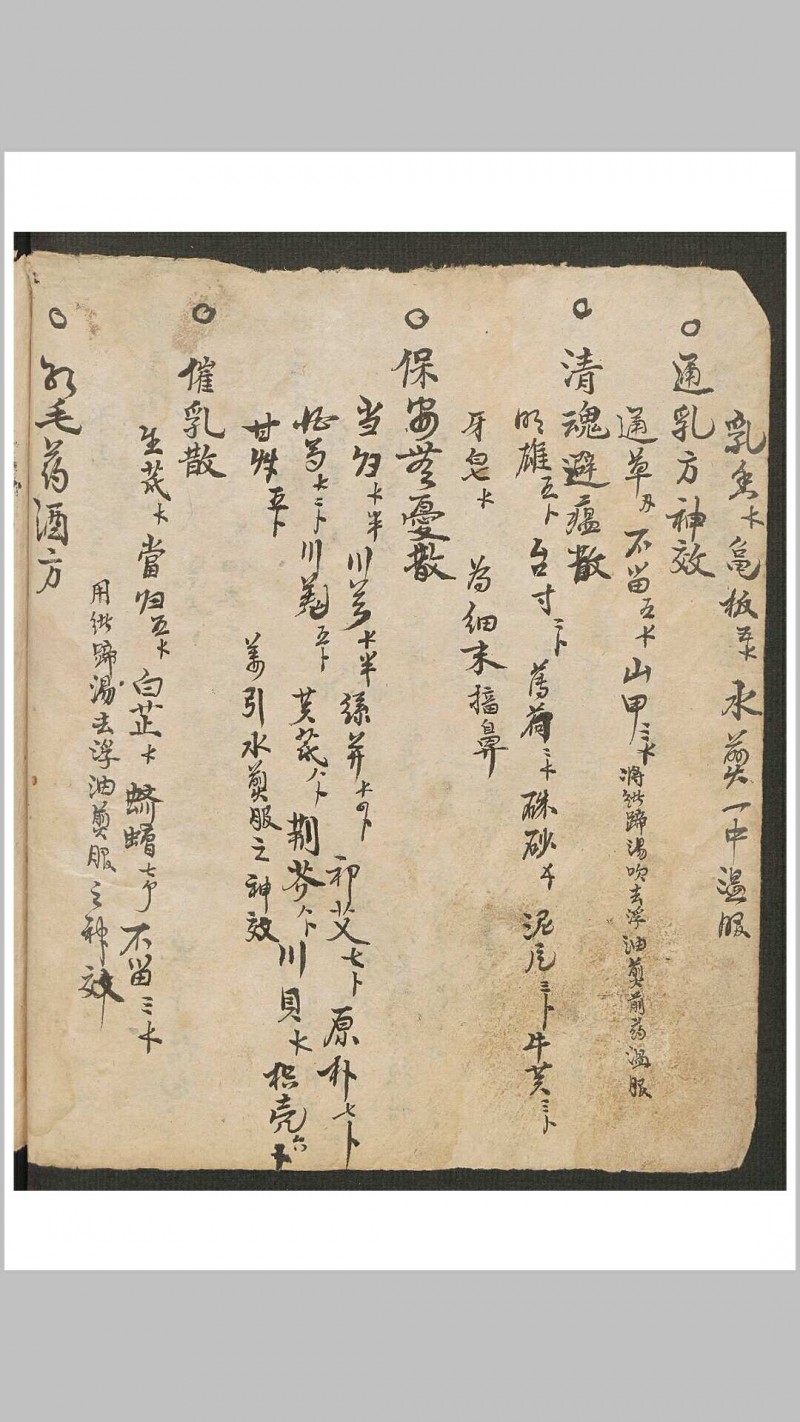 乳香卜 龟板五卜 水煎一中温服
通乳方神效
通草 不留五卜 山甲三卜 将猪蹄湯吹去浮油煎前药温服
清魂避瘟散
明雄五卜 台寸二卜 薄荷三卜 硃砂 泥尼三卜 牛黄三卜
牙皂卜 為细末搐鼻
保安無憂散
当归卜半 川芎卜半 絲卜 祁艾七卜 原朴七卜
卜二卜 川羌五卜 黄芪八卜 荆芥八卜 川貝卜 枳壳六
甘草五卜 姜引水煎服之神效
催乳散
生芪卜 當归五卜 白芷卜 蛴螬七个 不留三卜
用猪蹄湯去浮油煎服之神效
毛药酒方